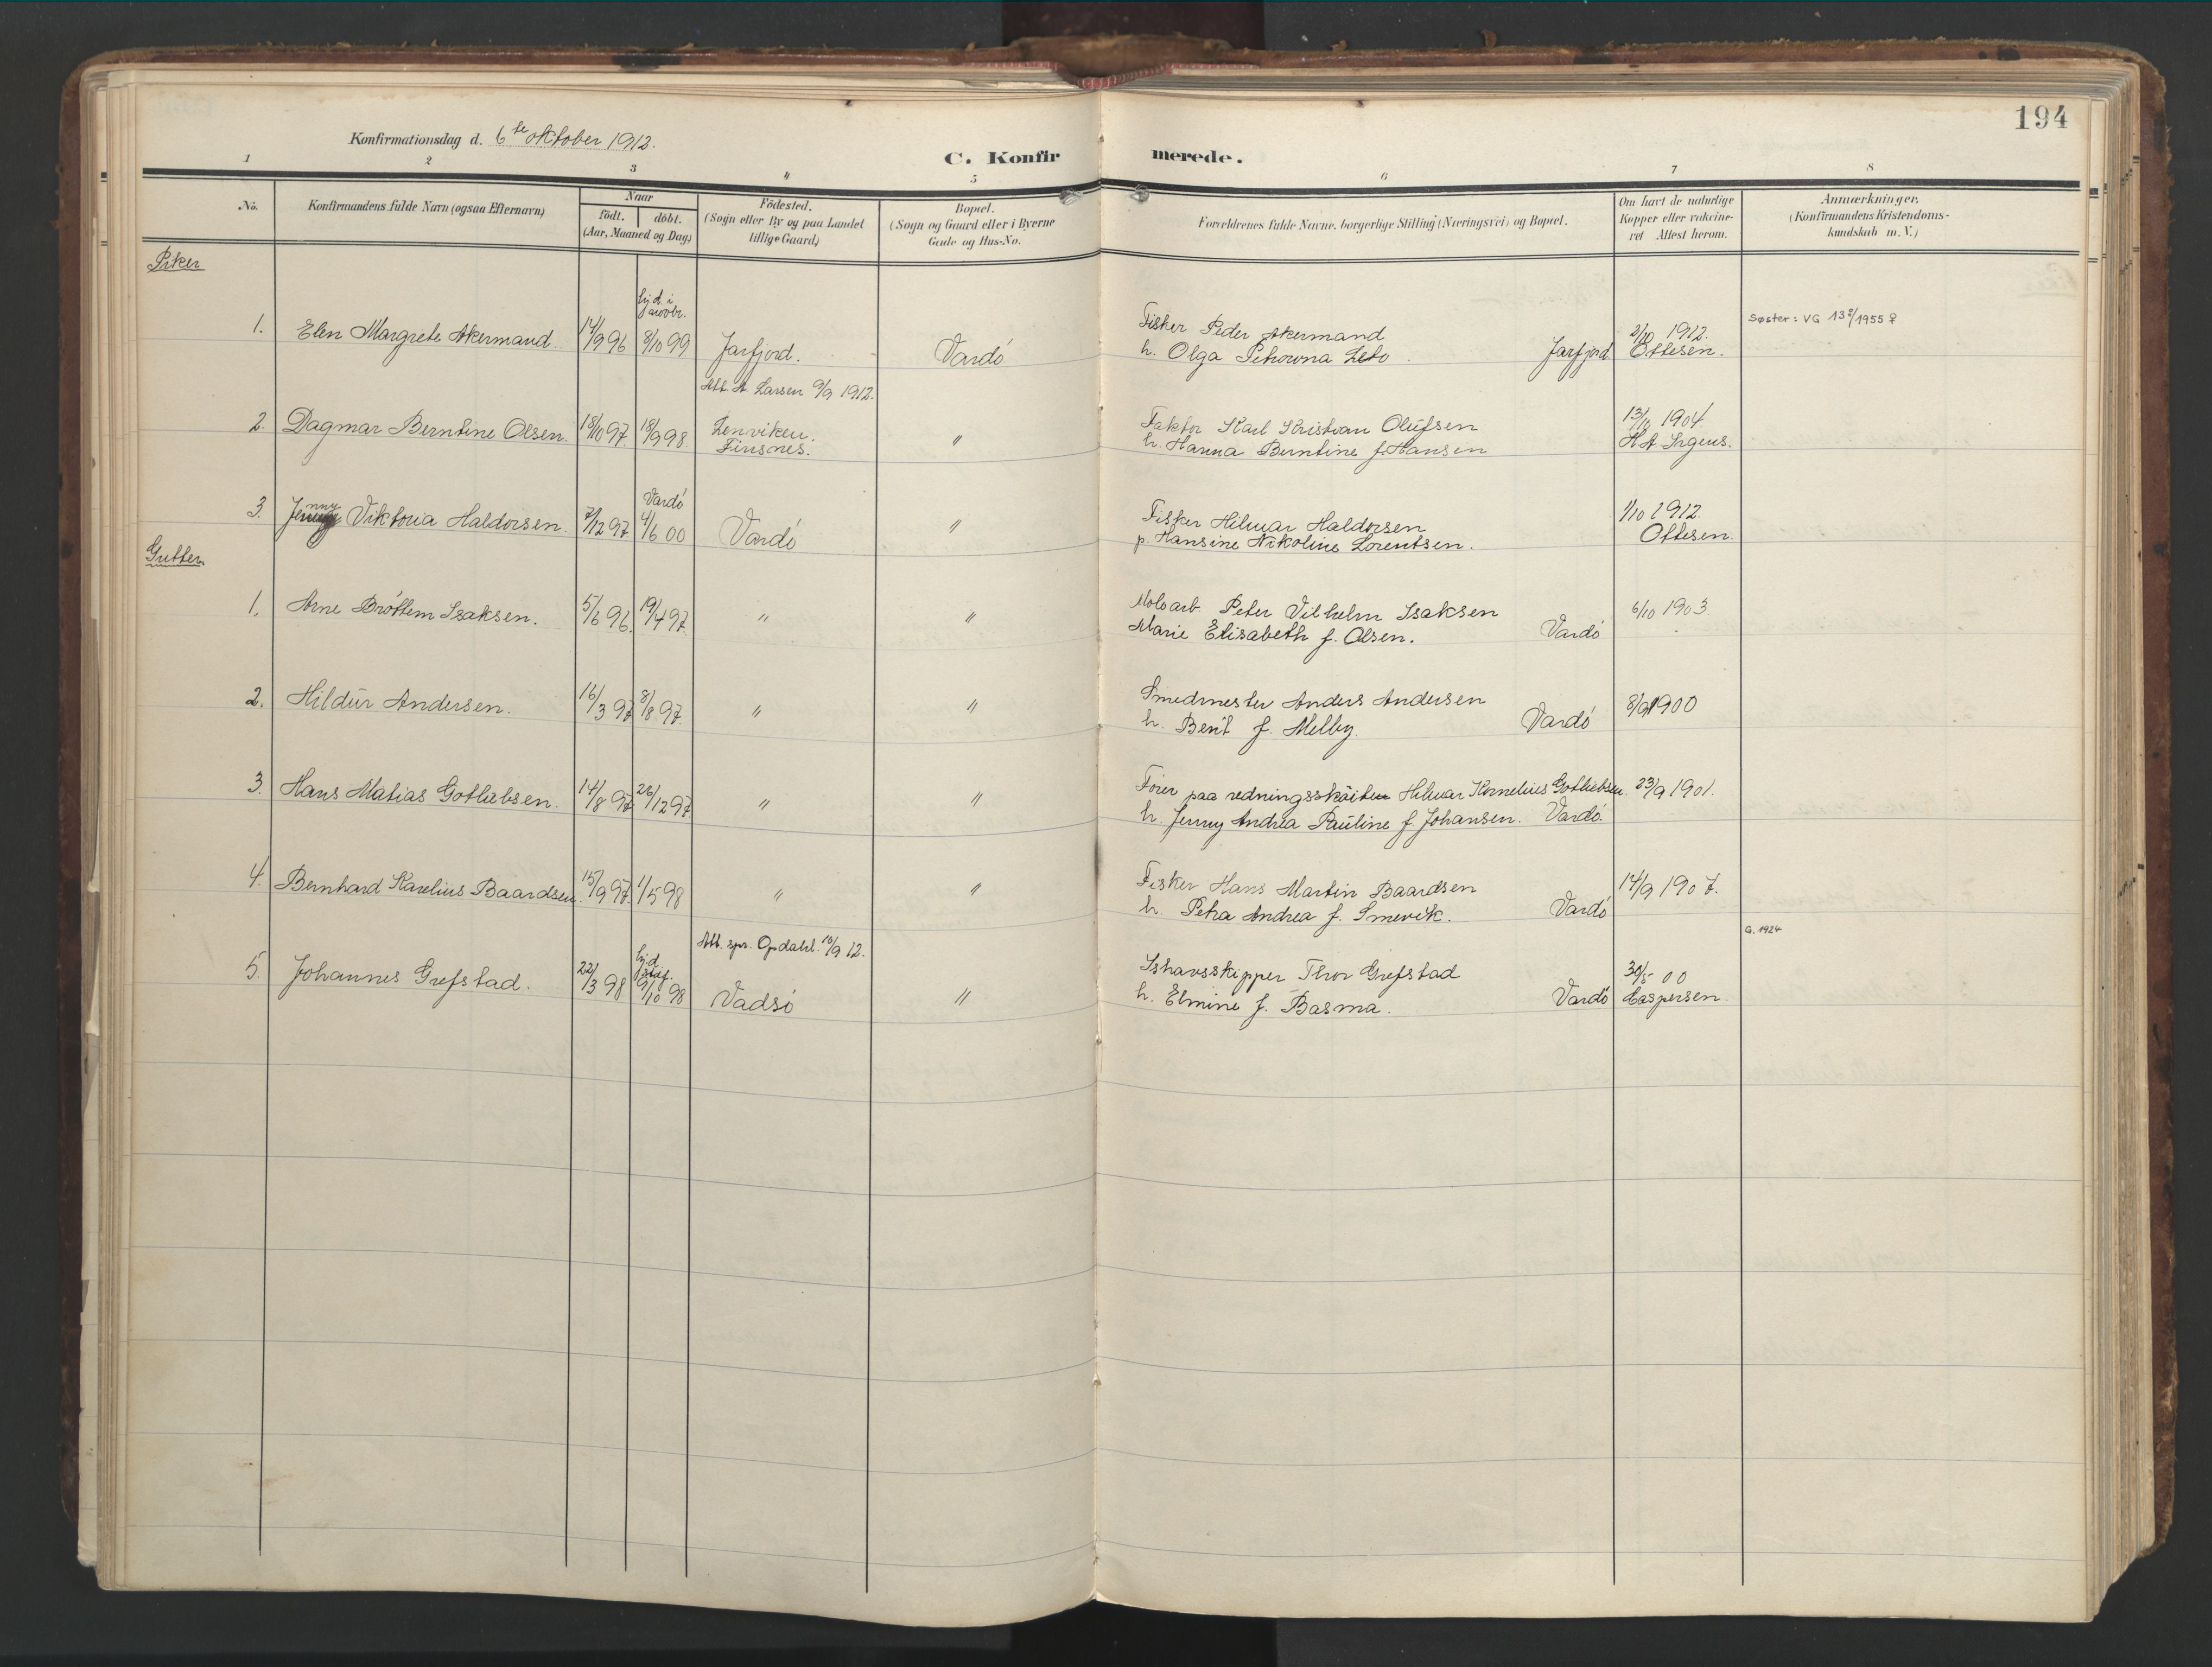 194
Konfirmationsdag d. 6te oktober 1912.
C. Konfirmerede.
1 2 3 4 5 6 7 8
No.
Konfirmandens fulde Navn (ogsaa Efternavn)
Naar
födt. döbt.
(Aar, Maaned og Dag)
Födested.
(Sogn eller By og paa Landet
tillige Gaard)
Bopæl.
(Sogn og Gaard eller i Byerne
Gade og Hus-No.
Forældrenes fulde Navne, borgerlige Stilling (Næringsvei) og Bopæl.
Om havt de naturlige
Kopper eller vakcine-
ret Attest herom.
Anmærkninger.
(Konfirmandens Kristendoms-
kundskab m. V.)
Piker
1. Elen Margrete Akermand 14/9 96 hj.d. i 8/10 99 Jarfjord. Vardö
Fisker Peder Akermand
h. Olga Petrowna Leto Jarfjord
2/10 1912.
Ottesen.
Søster: VG 13 8/1955 ♀
Att. A Larsen 9/9 1912.
2. Dagmar Berntine Olsen. 18/10 97 18/9 98. Lenviken. "
Finsnes.
Faktor Karl Kristian Olüfsen
h. Hanna Berntine f Hansen
13/10 1904
H A Irgens.
3. Jenny Viktoria Haldorsen. 7/12 97 Vardö 4/6 00 Vardö "
Fisker Hilmar Haldorsen
p. Hansine Nikoline Lorentsen.
1/10 1912.
Ottesen.
Gutter.
1. Arne Bröttem Isaksen. 5/6 96. 19/4 97. " "
Moloarb. Peter Vilhelm Isaksen
Marie Elisabeth f. Olsen. Vardö
6/10 1903
2. Hildür Andersen. 16/3 97 8/8 97 " "
Smedmester Anders Andersen
h. Berit f. Melby. Vardö
8/9 1900
3. Hans Matias Gotliebsen. 14/8 97 26/12 97 " "
Förer paa redningsskõiten Hilmar Kornelius Gotliebsen.
h. Jenny Andrea Paüline f Johansen. Vardö.
23/9 1901.
4. Bernhard Karelius Baardsen. 15/9 97. 1/5 98 " "
Fisker Hans Martin Baardsen
h. Petra Andrea f. Smevik. Vardö
14/9 1907.
G. 1924
Att. spr. Opdahl. 10/9 12.
5. Johannes Grefstad. 22/3 98 hj.d. 9/10 98 Vadsö "
Ishavsskipper Thor Grefstad
h. Elmine f. Basma. Vardö
30/5 00
Caspersen.